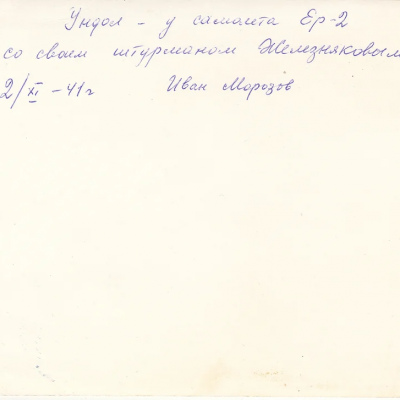 Ундол – у самолета Ер-2
со своим штурманом Железняковым
2/XI – 41 г Иван Морозов